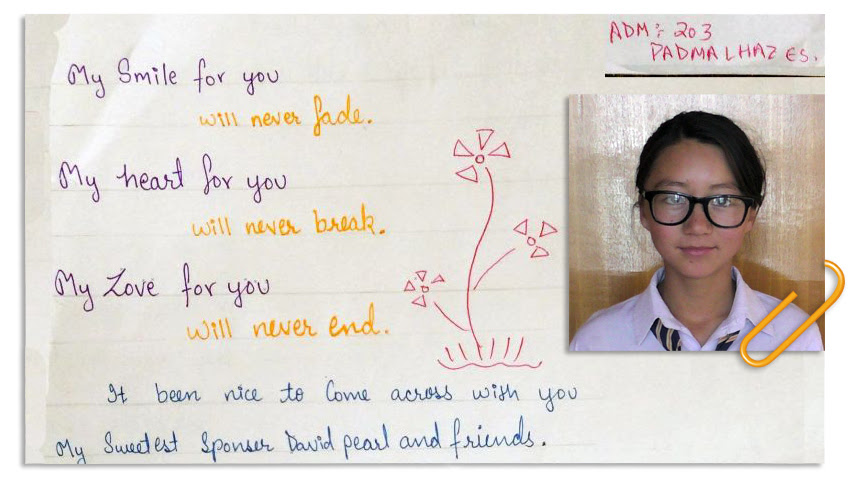 ADM: 203
PADMA LHAZES.
My Smile for you
will never fade.
My heart for you
will never break.
My Love for you
will never end.
It been nice to Come across wish you
My Sweetest Sponser David pearl and friends.